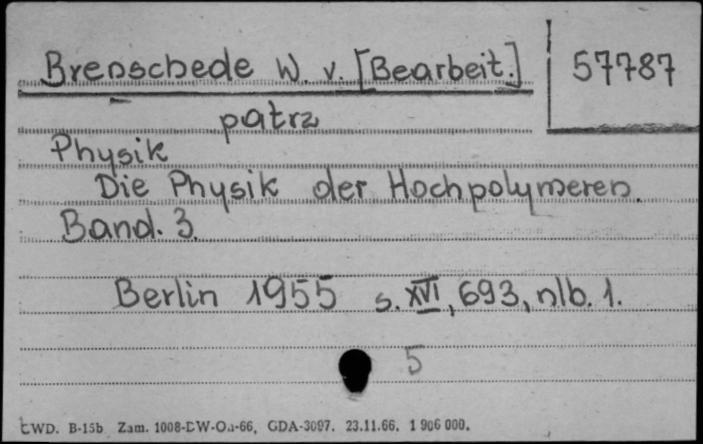 Brenschede W. v. [Bearbeit.] 57787
patrz
Physik
Die Physik der Hochpolymeren.
Band. 3.
Berlin 1955 s. XVI, 693, nlb. 1.
5
CWD. B-15b Zam. 1008-DW-Oa-66, GDA-3097. 23.11.66. 1 906 000.